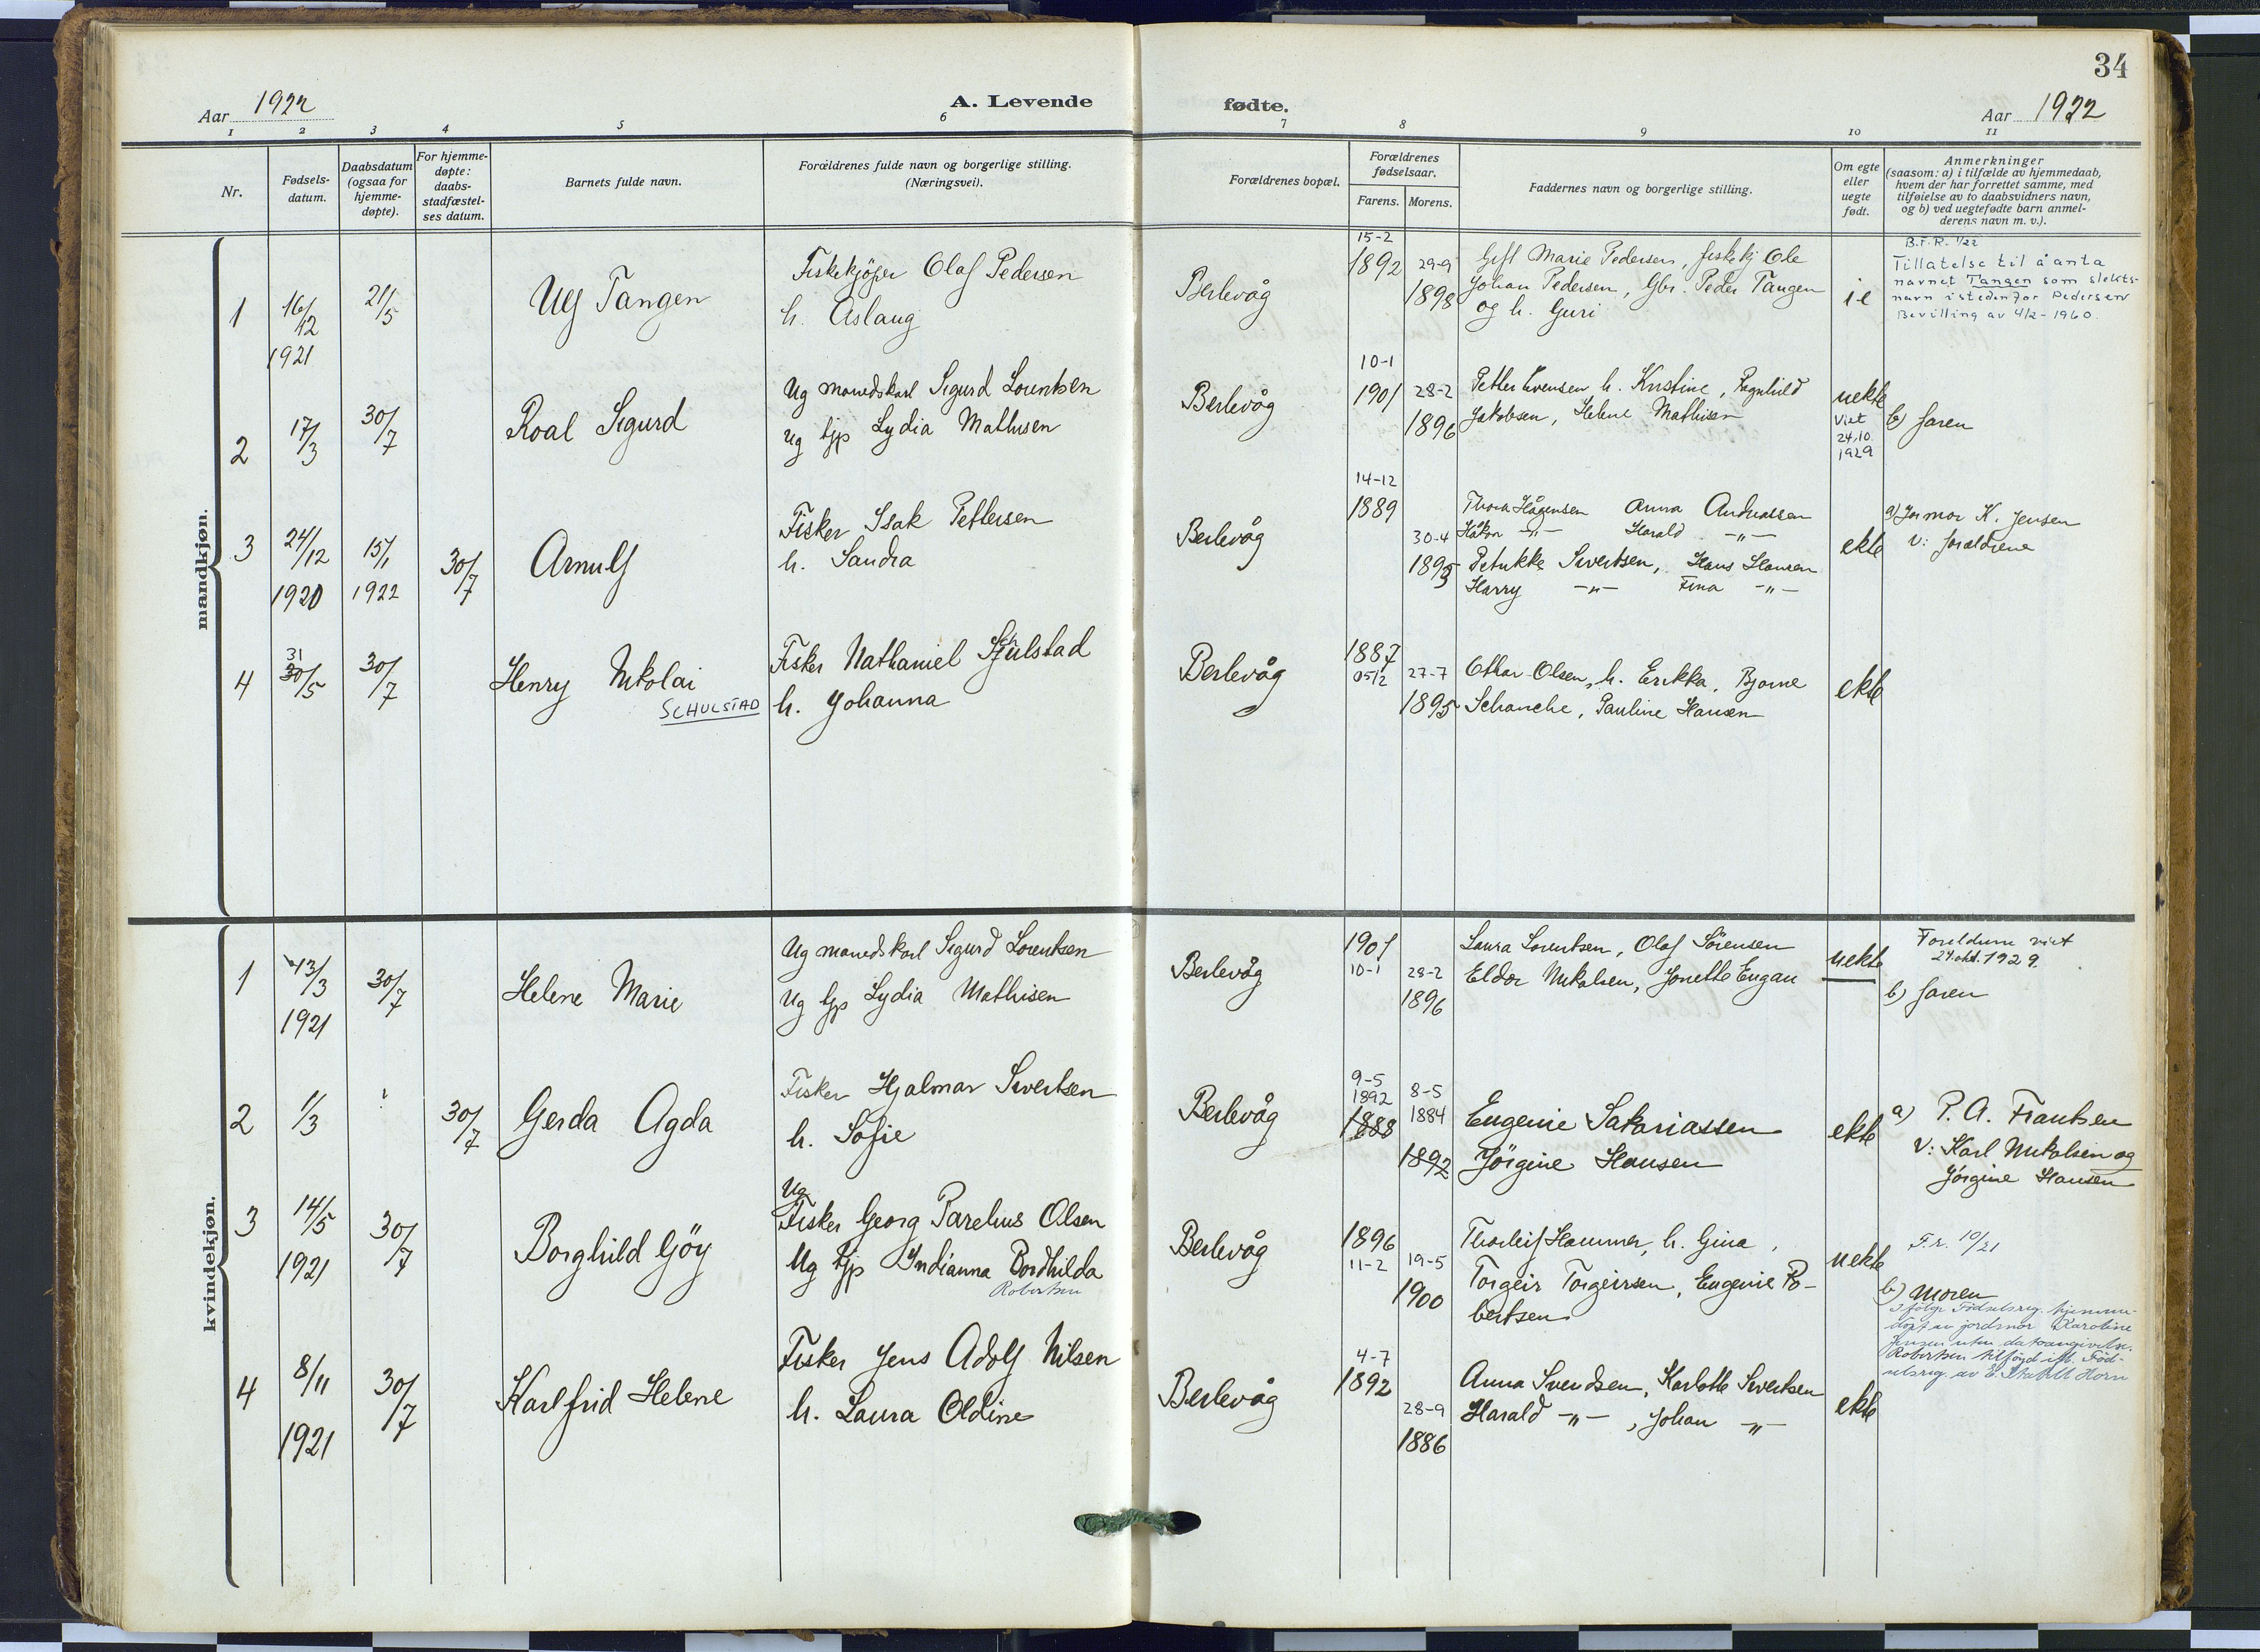 34
Aar 1922
A. Levende fødte.
Aar 1922
1 2 3 4 5 6 7 8 9 10 11
Nr.
Fødsels-
datum.
Daabsdatum
(ogsaa for
hjemme-
døpte).
For hjemme-
døpte:
daabs-
stadfæstel-
ses datum.
Barnets fulde navn.
Forældrenes fulde navn og borgerlige stilling.
(Næringsvei).
Forældrenes bopæl.
Forældrenes
fødselsaar.
Farens. Morens.
Faddernes navn og borgerlige stilling.
Om egte
eller
uegte
født.
Anmerkninger
(saasom: a) i tilfælde av hjemmedaab,
hvem der har forrettet samme, med
tilføielse av to daabsvidners navn,
og b) ved uegtefødte barn anmel-
derens navn m. v.).
mandkjøn.
1
16/12
1921
21/5
Ulf Tangen
Fiskekjøper Olaf Pedersen
h. Aslaug
Berlevåg
15-2
1892
29-9
1898
Gift Marie Pedersen, fiskekj Ole
Johan Pedersen, Gbr. Peder Tangen
og h. Guri
B.F.R. 1/22
Tillatelse til å anta
navnet Tangen som slekts-
navn istedenfor Pedersen
Bevilling av 4/2-1960.
2
17/3
30/7
Roal Sigurd
Ug månedskarl Sigurd Lorentsen
ug tjp Lydia Mathisen
Berlevåg
10-1
1901
28-2
1896
Petter Evensen h. Kristine, Ragnhild
Jakobsen, Helene Mathisen
uekte
Viet
24.10.
1929
b) faren
3
24/12
1920
15/1
1922
30/7
Arnulf
Fisker Isak Pettersen
h. Sandra
Berlevåg
14-12
1889
30-4
1893
Thora Hågensen Anna Andreassen
Håkon -"- Harald -"-
Petrikke Sivertsen, Hans Hansen
Harry -"- Fina -"-
ekte
a) Jormor K. Jensen
V: forældrene
4
31
30/5
30/7
Henry Nikolai
SCHULSTAD
Fisker Nathaniel Sjulstad
h. Johanna
Berlevåg
1887
05/2
27-7
1895
Othar Olsen, h. Erikka, Bjarne
Schanche, Pauline Hansen
ekte
kvindekjøn.
1
13/3
1921
30/7
Helene Marie
Ug månedskarl Sigurd Lorentsen
Ug tjp Lydia Mathisen
Berlevåg
1901
10-1
28-2
1896
Laura Lorentsen, Olaf Sørensen
Eldor Nikolsen, Jonette Engan
uekte
Foreldrene viet
24 okt. 1929.
b) faren
2
1/3
30/7
Gerda Agda
Fisker Hjalmar Sivertsen
h. Sofie
Berlevåg
9-5
1892
1888
8-5
1884
1892
Eugenie Sakariassen
Jørgine Hansen
ekte
a) P. A. Frantsen
V: Karl Nikolsen og
Jørgine Hansen
3
14/5
1921
30/7
Borghild Göy
Ug
Fisker Georg Parelius Olsen
Ug tjp Indianna Bordhilda
Robertsen
Berlevåg
1896
11-2
19-5
1900
Thorleif Hammer, h. Gina,
Torgeir Torgeirsen, Eugenie Ro-
bertsen
uekte
F.r. 10/21
b) moren
Ifølge Fødselsreg. hjemme-
døpt av jordmor Karoline
Jensen uten datoangivelse.
Robertsen tilføyd ifl. Fød-
selsreg av
4
8/11
1921
30/7
Karlfrid Helene
Fisker Jens Adolf Nilsen
h. Laura Oldine
Berlevåg
4-7
1892
28-9
1886
Anna Svendsen, Karlotte Sivertsen
Harald -"-, Johan -"-
ekte